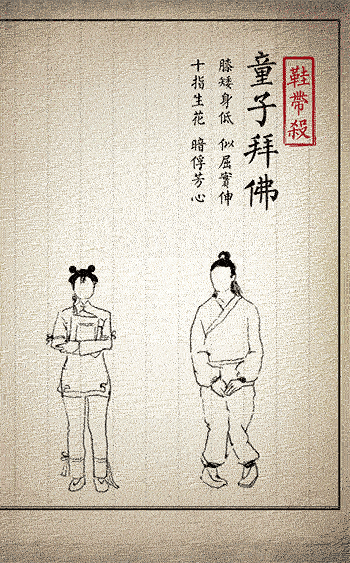 鞋帶殺
童子拜佛
膝矮身低 似屈實伸
十指生花 暗俘芳心